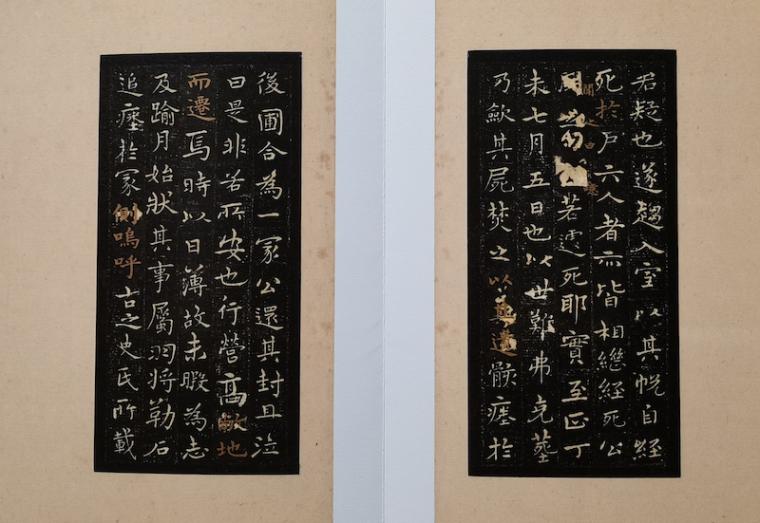 君疑也遂趨入室以其帨自經
死於户六人者亦皆相繼經死公
若遽死耶實至正丁
未七月五日也以世難弗克葬
乃歛其屍焚之以其遺骸瘞於
後圃合為一冢公還其封且泣
曰是非若所安也行營高敞地
而遷焉時以日薄故未暇為志
及踰月始狀其事屬羽將勒石
追瘞於冢側嗚呼古之史氏所載